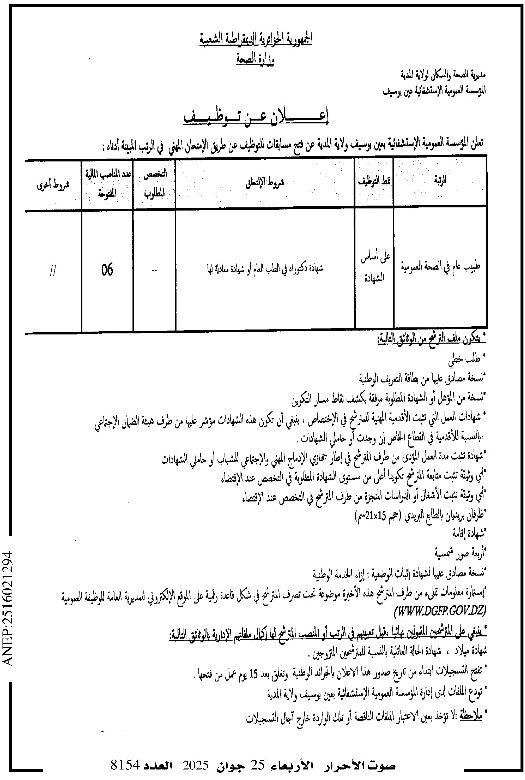 الجمهورية الجزائرية الديمقراطية الشعبية
وزارة الصحة
مديرية الصحة والسكان لولاية المدية
المؤسسة العمومية الإستشفائية عين بوسيف
إعـــلان عن توظـيــف
تعلن المؤسسة العمومية الإستشفائية بعين بوسيف ولاية المدية عن فتح مسابقات للتوظيف عن طريق الإمتحان المهني في الرتب المبينة أدناه :
الرتبة
نمط التوظيف
شروط الإلتحاق
التخصص المطلوب
عدد المناصب المالية المفتوحة
شروط أخرى
طبيب عام في الصحة العمومية
على أساس الشهادة
شهادة دكتوراه في الطب العام أو شهادة معادلة لها
--
06
//
* يتكون ملف الترشح من الوثائق التالية:
* طلب خطي
*نسخة مصادق عليها من بطاقة التعريف الوطنية
*نسخة من المؤهل أو الشهادة المطلوبة مرفقة بكشف نقاط مسار التكوين
* شهادات العمل التي تثبت الأقدمية المهنية للمترشح في الإختصاص ، ينبغي أن تكون هذه الشهادات مؤشر عليها من طرف هيئة الضمان الإجتماعي
،بالنسبة للأقدمية في القطاع الخاص إن وجدت أو حاملي الشهادات.
*شهادة تثبت مدة العمل المؤدى من طرف المترشح في إطار جهازي الإدماج المهني والإجتماعي للشباب أو حاملي الشهادات
*أي وثيقة تثبت متابعة المترشح تكوينا أعلى من مستوى الشهادة المطلوبة في التخصص عند الإقتضاء
*أي وثيقة تثبت الأشغال أو الدراسات المنجزة من طرف المترشح في التخصص عند الإقتضاء
*ظرفان بريديان بالطابع البريدي (حجم 15×21سم)
*شهادة إقامة
*أربعة صور شمسية
*نسخة مصادق عليها لشهادة إثبات الوضعية : إزاء الخدمة الوطنية
*إستمارة معلومات تملىء من طرف المترشح هذه الأخيرة موضوعة تحت تصرف المترشح في شكل قاعدة رقمية على الموقع الإلكتروني للمديرية العامة للوظيفة العمومية
(WWW.DGFP.GOV.DZ)
* ينبغي على المترشحين المقبولين نهائيا ،قبل تعيينهم في الرتب أو المنصب المترشح لها إكمال ملفاتهم الإدارية بالوثائق التالية:
شهادة ميلاد ، شهادة الحالة العائلية بالنسبة للمترشحين المتزوجين .
* تفتح التسجيلات ابتداء من تاريخ صدور هذا الاعلان بالجرائد الوطنية وتغلق بعد 15 يوم عمل من فتحها .
* تودع الملفات لدى إدارة المؤسسة العمومية الإستشفائية بعين بوسيف ولاية المدية
* ملاحظة :لا تؤخذ بعين الاعتبار الملفات الناقصة أو تلك الواردة خارج آجال التسجيلات
ANEP:2516021294
صوت الأحرار الأربعاء 25 جوان 2025 العدد 8154